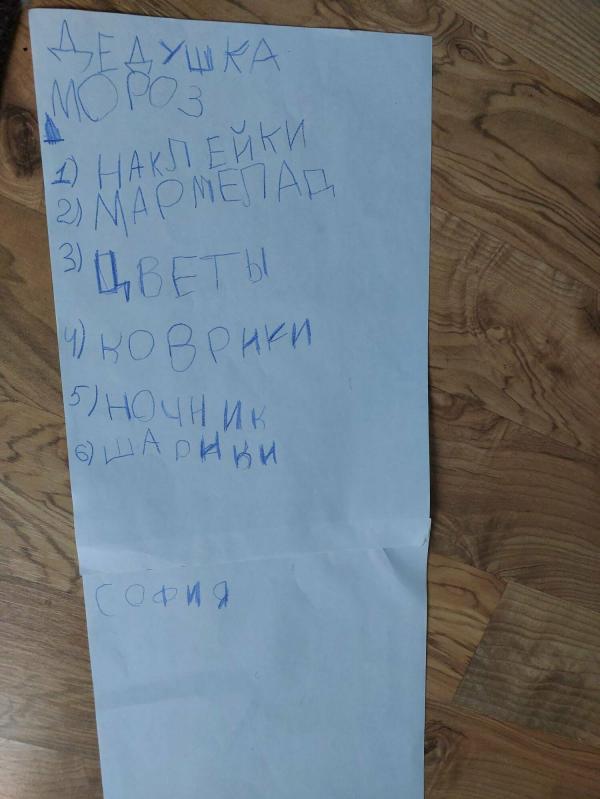 ДЕДУШКА
МОРОЗ
1) НАКЛЕЙКИ
2) МАРМЕЛАД
3) ЦВЕТЫ
4) КОВРИКИ
5) НОЧНИК
6) ШАРИКИ
СОФИЯ